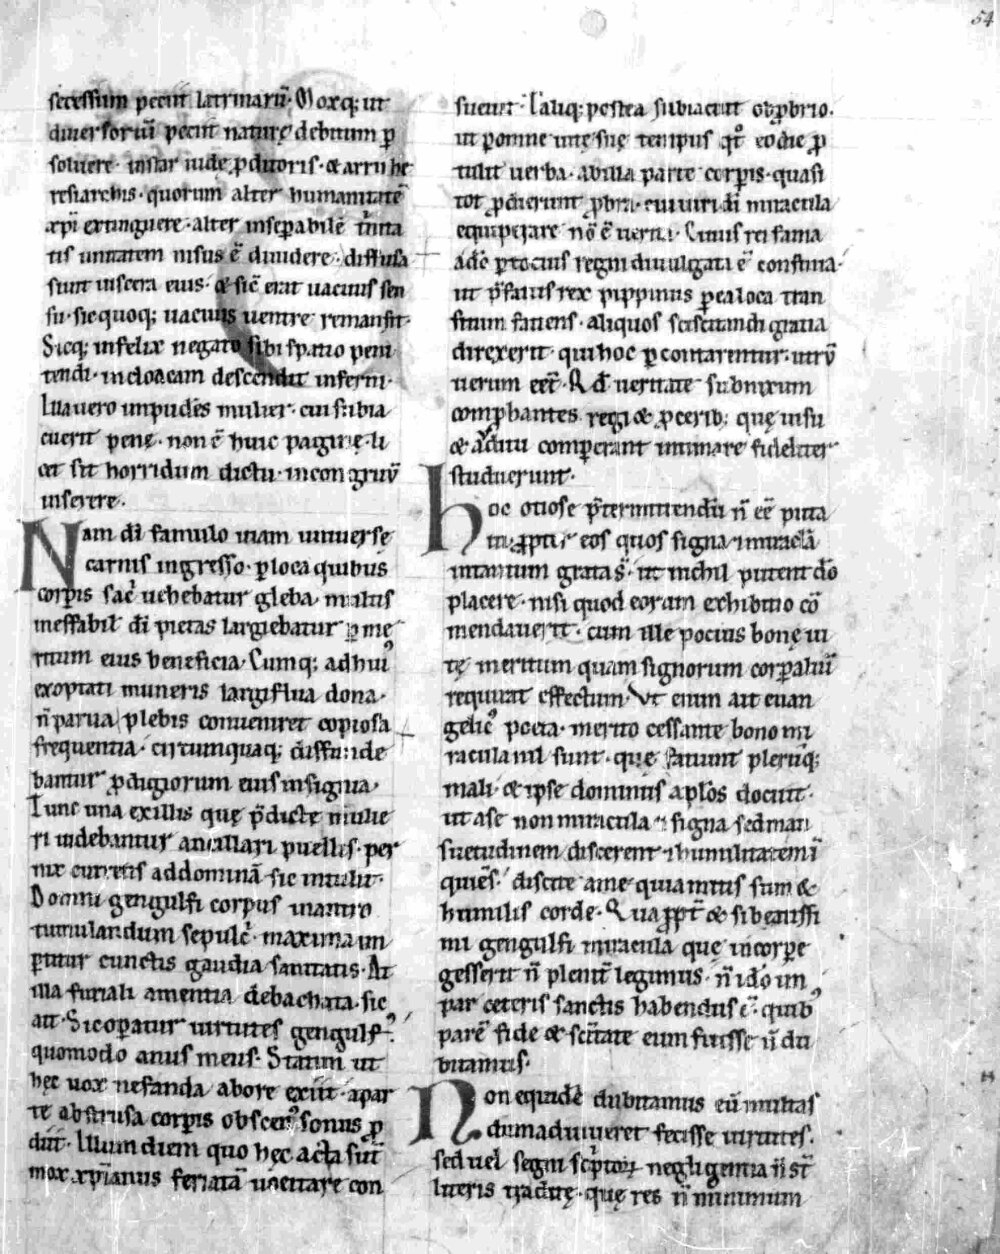 54
secessum peciit latrinarū. Moxq; ut
diuersoriū peciit naturę debitum p̄
soluere. instar iudę ꝓditoris. & arrii he
resiarchis. quorum alter humanitatē
xp̄i extinguere. alter insepabilē t̄nita
tis unitatem nisus ē diuidere. diffusa
sunt uiscera eius. & sic̄ erat uacuus sen
su. sic quoq; uacuus uentre remansit.
Sicq; infelix negato sibi spatio peni
tendi. in cloacam descendit inferni.
Illa uero impudēs mulier. cui subia
cuerit penę. non ē huic paginę. li
cet sit horridum dictu. incongruū
inserere.
Nam dī famulo uiam uniuersę
carnis ingresso. ꝑ loca quibus
corꝑis sac̄ uehebatur gleba. multis
ineffabil dī pietas largiebatur ꝑ me
ritum eius beneficia. Cumq; adhui9
exoptati muneris largiflua dona.
n̄ parua plebis conueniret copiosa
frequentia. circumquaq; diffunde
bantur ꝓdigiorum eius insignia.
Tunc una ex illis quę p̄dictę mulie
ri uidebantur ancillari puellis. per
nix currens ad dominā. sic intulit.
Domni gengulfi corpus in antro
tumulandum sepulc̄. maxima im
ꝑtitur cunctis gaudia sanitatis. At
illa furiali amentia debachata. sic
ait. Sic oꝑatur uirtutes gengulf9.
quomodo anus meus. Statim ut
hęc uox nefanda ab ore exiit. a par
te abstrusa corꝑis obscen9 sonus ꝓ
diit. Illum diem quo hęc acta sunt
mox xp̄ianus feriatā uocitare con
sueuit. Taliq; postea subiacuit obꝓbrio.
ut ꝑ omne uitę suę tempus q̄t eo die ꝓ
tulit uerba. ab illa parte corꝑis. quasi
tot ꝓdierunt ꝓbra. cui uiri dī miracula
equiperare nō ē uerita. Cuius rei fama
adeo ꝑ tocius regni diuulgata ē confinia.
ut p̄fatus rex pippinus ꝑ ea loca tran
situm faciens. aliquos sciscitandi gratia
direxerit. qui hoc ꝑcontarentur. utrū
uerum eet̄. Q d̄ ueritate subnixum
comꝓbantes regi & ꝓcerib; quę uisu
& auditu compererant intimare fideliter
studuerunt.
Hoc otiose p̄termittendū n̄ eē puta
tur. ꝓpter eos quos signa & miracl̄a
intantum grata s̄. ut nichil putent dō
placere. nisi quod eorum exhibitio cō
mendauerit. cum ille pocius bonę ui
tę meritum quam signorum corꝑaliū
requirat effectum. Vt enim ait euan
gelic9 poeta. merito cessante bono mi
racula nil sunt. que faciunt plerūq;
mali. & ipse dominus aplōs docuit.
ut a se non miracula & signa sed man
suetudinem discerent & humilitatem ī
quiens. discite a me quia mitis sum &
humilis corde. Quaꝓpt̄ & si beatissi
mi gengulfi miracula que in corpore
gesserit n̄ plenit̄ legimus. n̄ ideo im
par ceteris sanctis habendus ē. quib9
parē fide & sc̄itate eum fuisse n̄ du
bitamus.
Non equidē dubitamus eū multas
dum aduiueret fecisse uirtutes.
sed uel segni sc̄ptorꝝ negligentia n̄ st̄
litteris traditę. quę res n̄ minimum